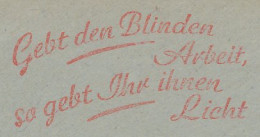 Gebt den Blinden
Arbeit,
so gebt Ihr ihnen
Licht